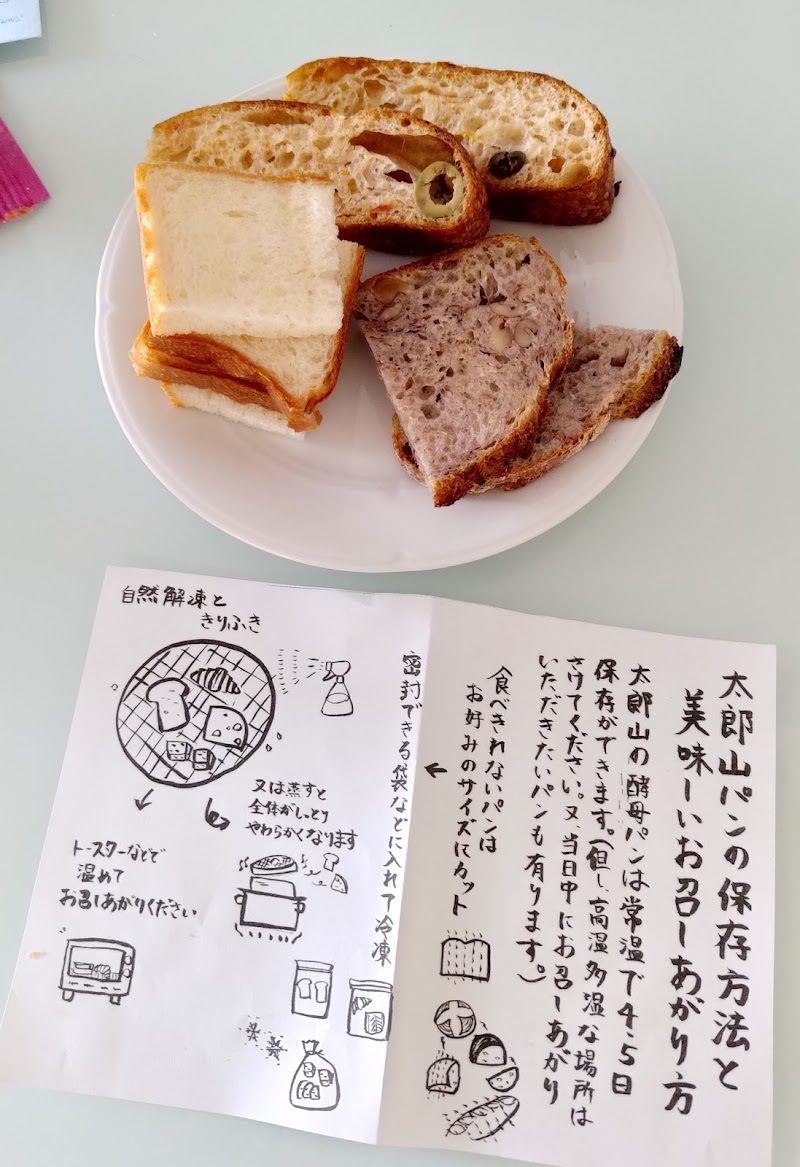 太郎山パンの保存方法と
美味しいお召しあがり方
太郎山の酵母パンは常温で4.5日
保存ができます。(但し、高温多湿な場所は
さけてください。又、当日中にお召しあがり
いただきたいパンも有ります。)
食べきれないパンは
お好みのサイズにカット
密封できる袋などに入れて冷凍
自然解凍と
きりふき
又は蒸すと
全体がしっとり
やわらかくなります
トースターなどで
温めて
お召しあがりください